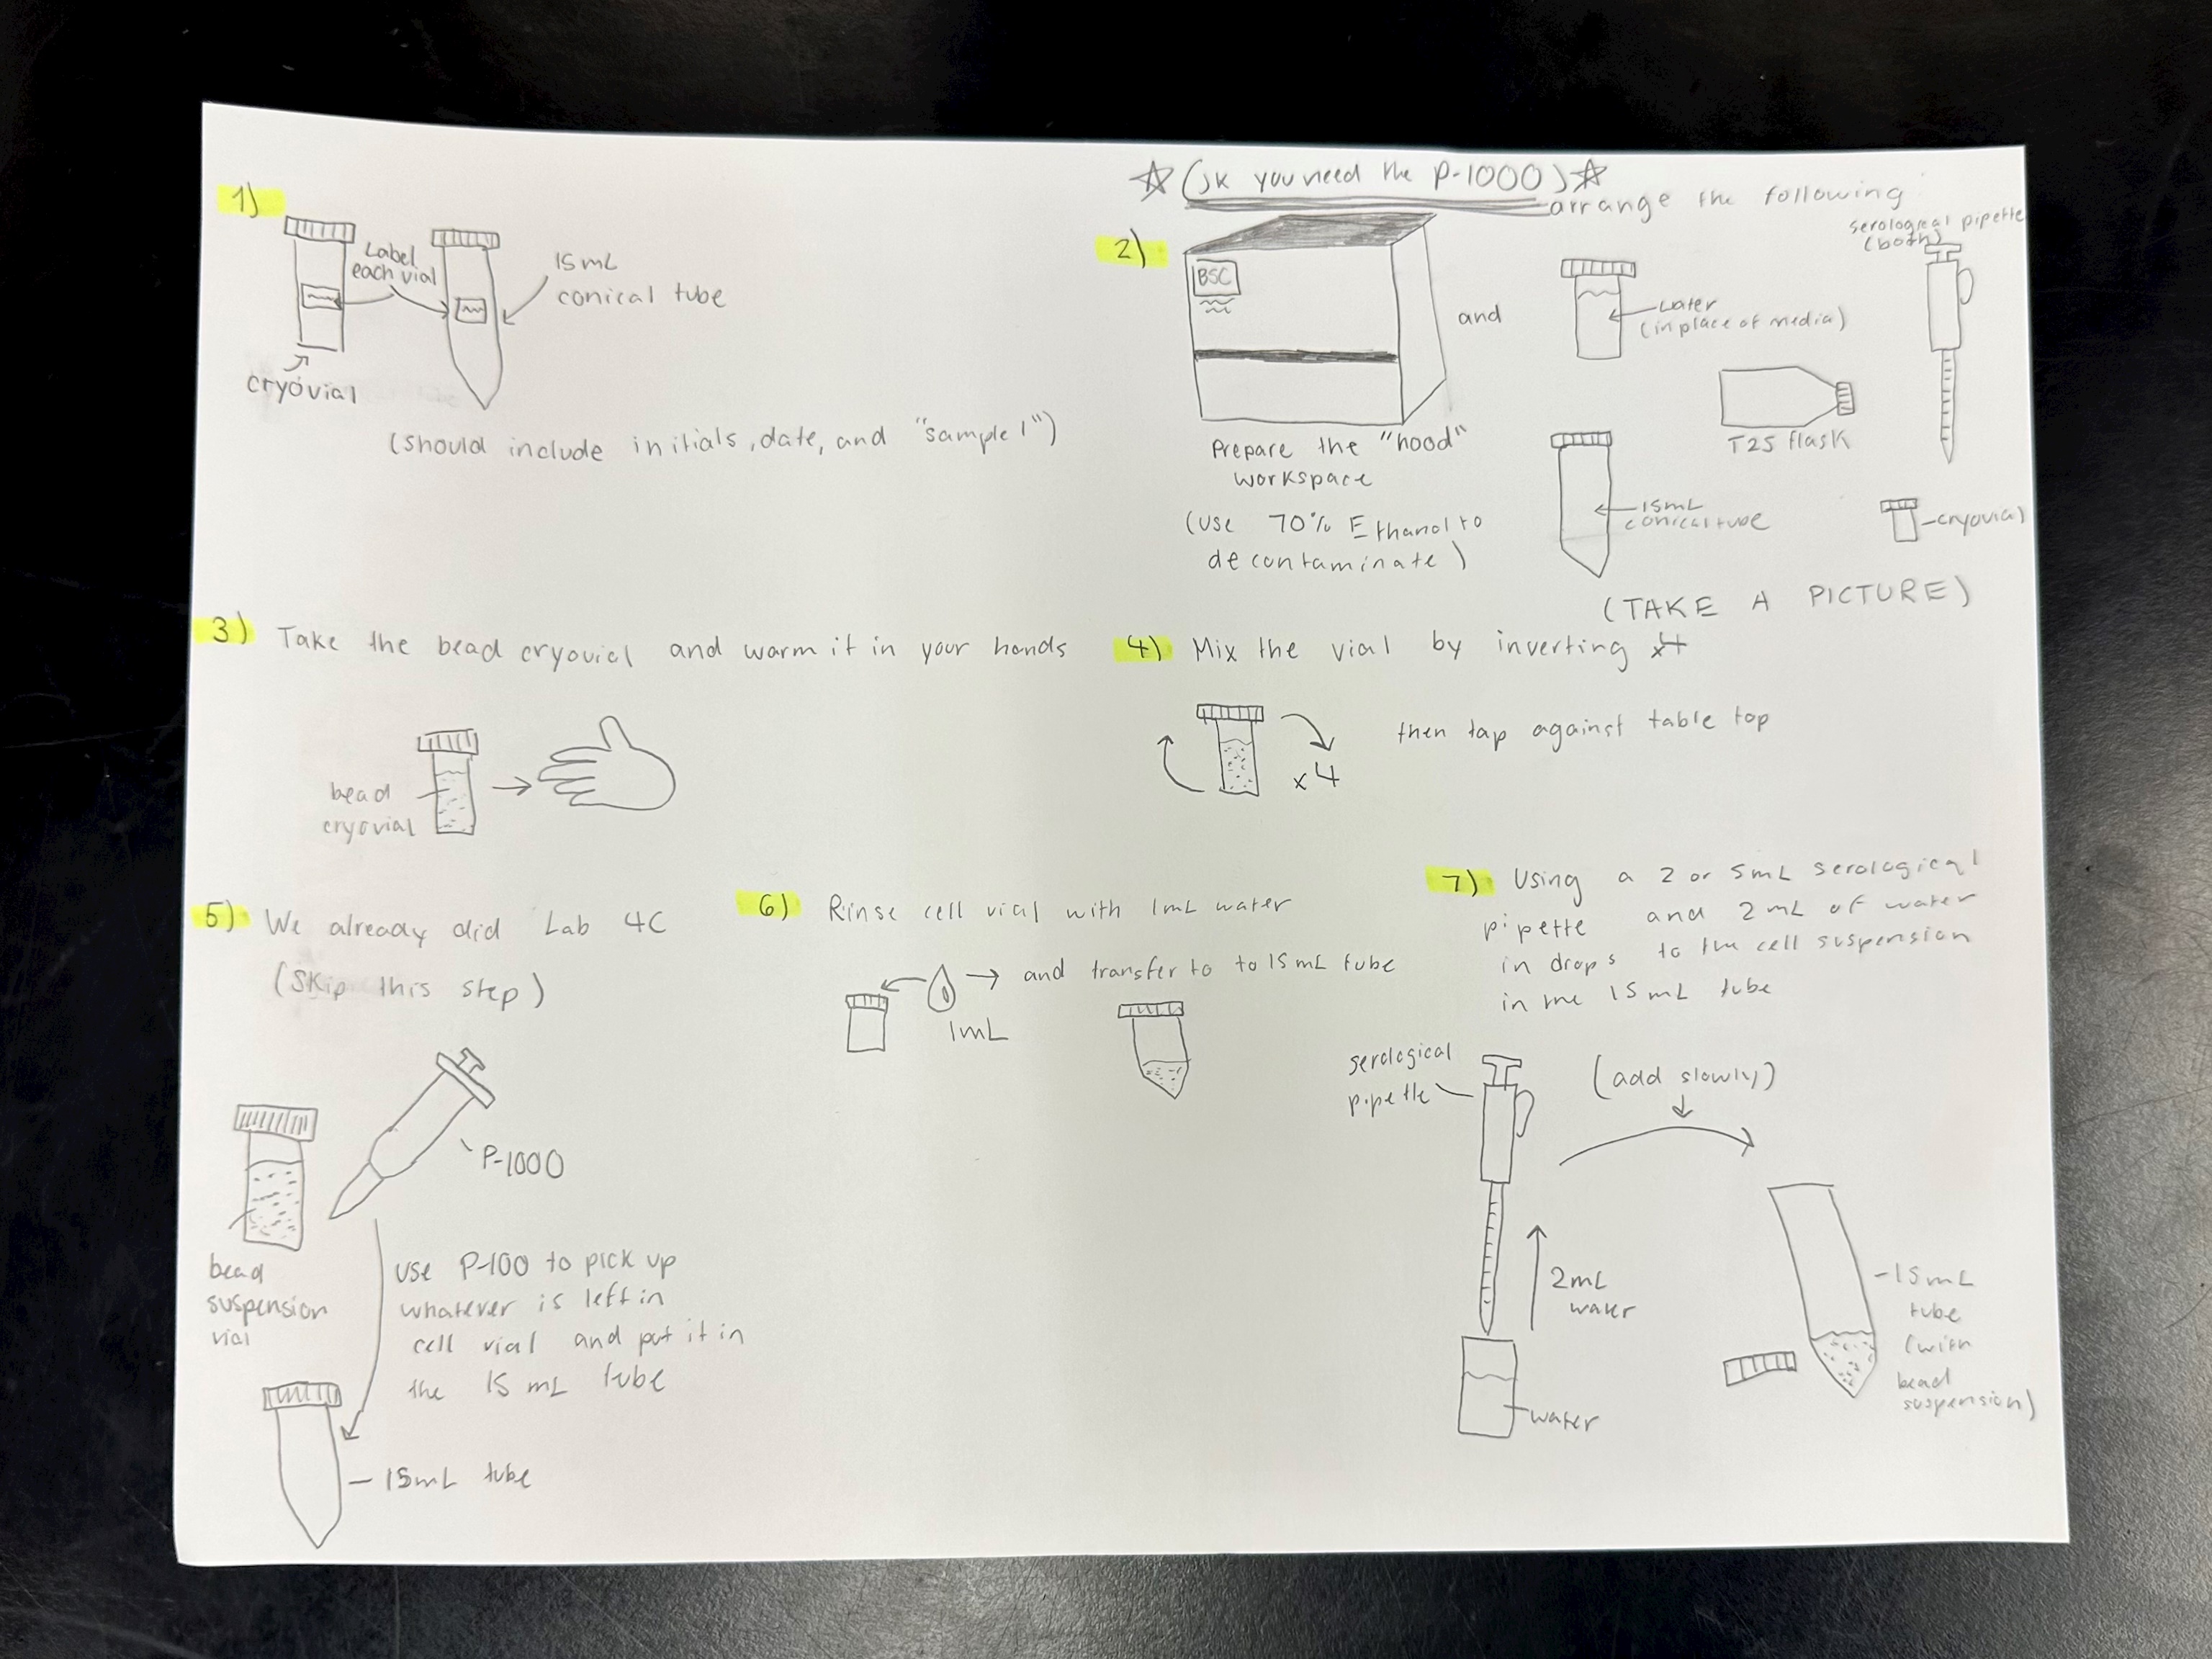 1)
Label
each vial
15mL
conical tube
cryovial
(should include initials, date, and "sample 1")
☆ (JK you need the P-1000) ☆
arrange the following:
2)
BSC
and
Prepare the "hood"
workspace
(use 70% Ethanol to
decontaminate)
serological pipette
(both)
water
(in place of media)
T25 flask
15mL
conical tube
cryovial
(TAKE A PICTURE)
3) Take the bead cryovial and warm it in your hands
bead
cryovial
4) Mix the vial by inverting x4
x4
then tap against table top
5) We already did Lab 4C
(Skip this step)
P-1000
bead
suspension
vial
use P-100 to pick up
whatever is left in
cell vial and put it in
the 15 mL tube
15mL tube
6) Rinse cell vial with 1mL water
→ and transfer to to 15mL tube
1mL
7) Using a 2 or 5mL serological
pipette and 2mL of water
in drops to the cell suspension
in the 15mL tube
serological
pipette
(add slowly)
2mL
water
water
15mL
tube
(with
bead
suspension)